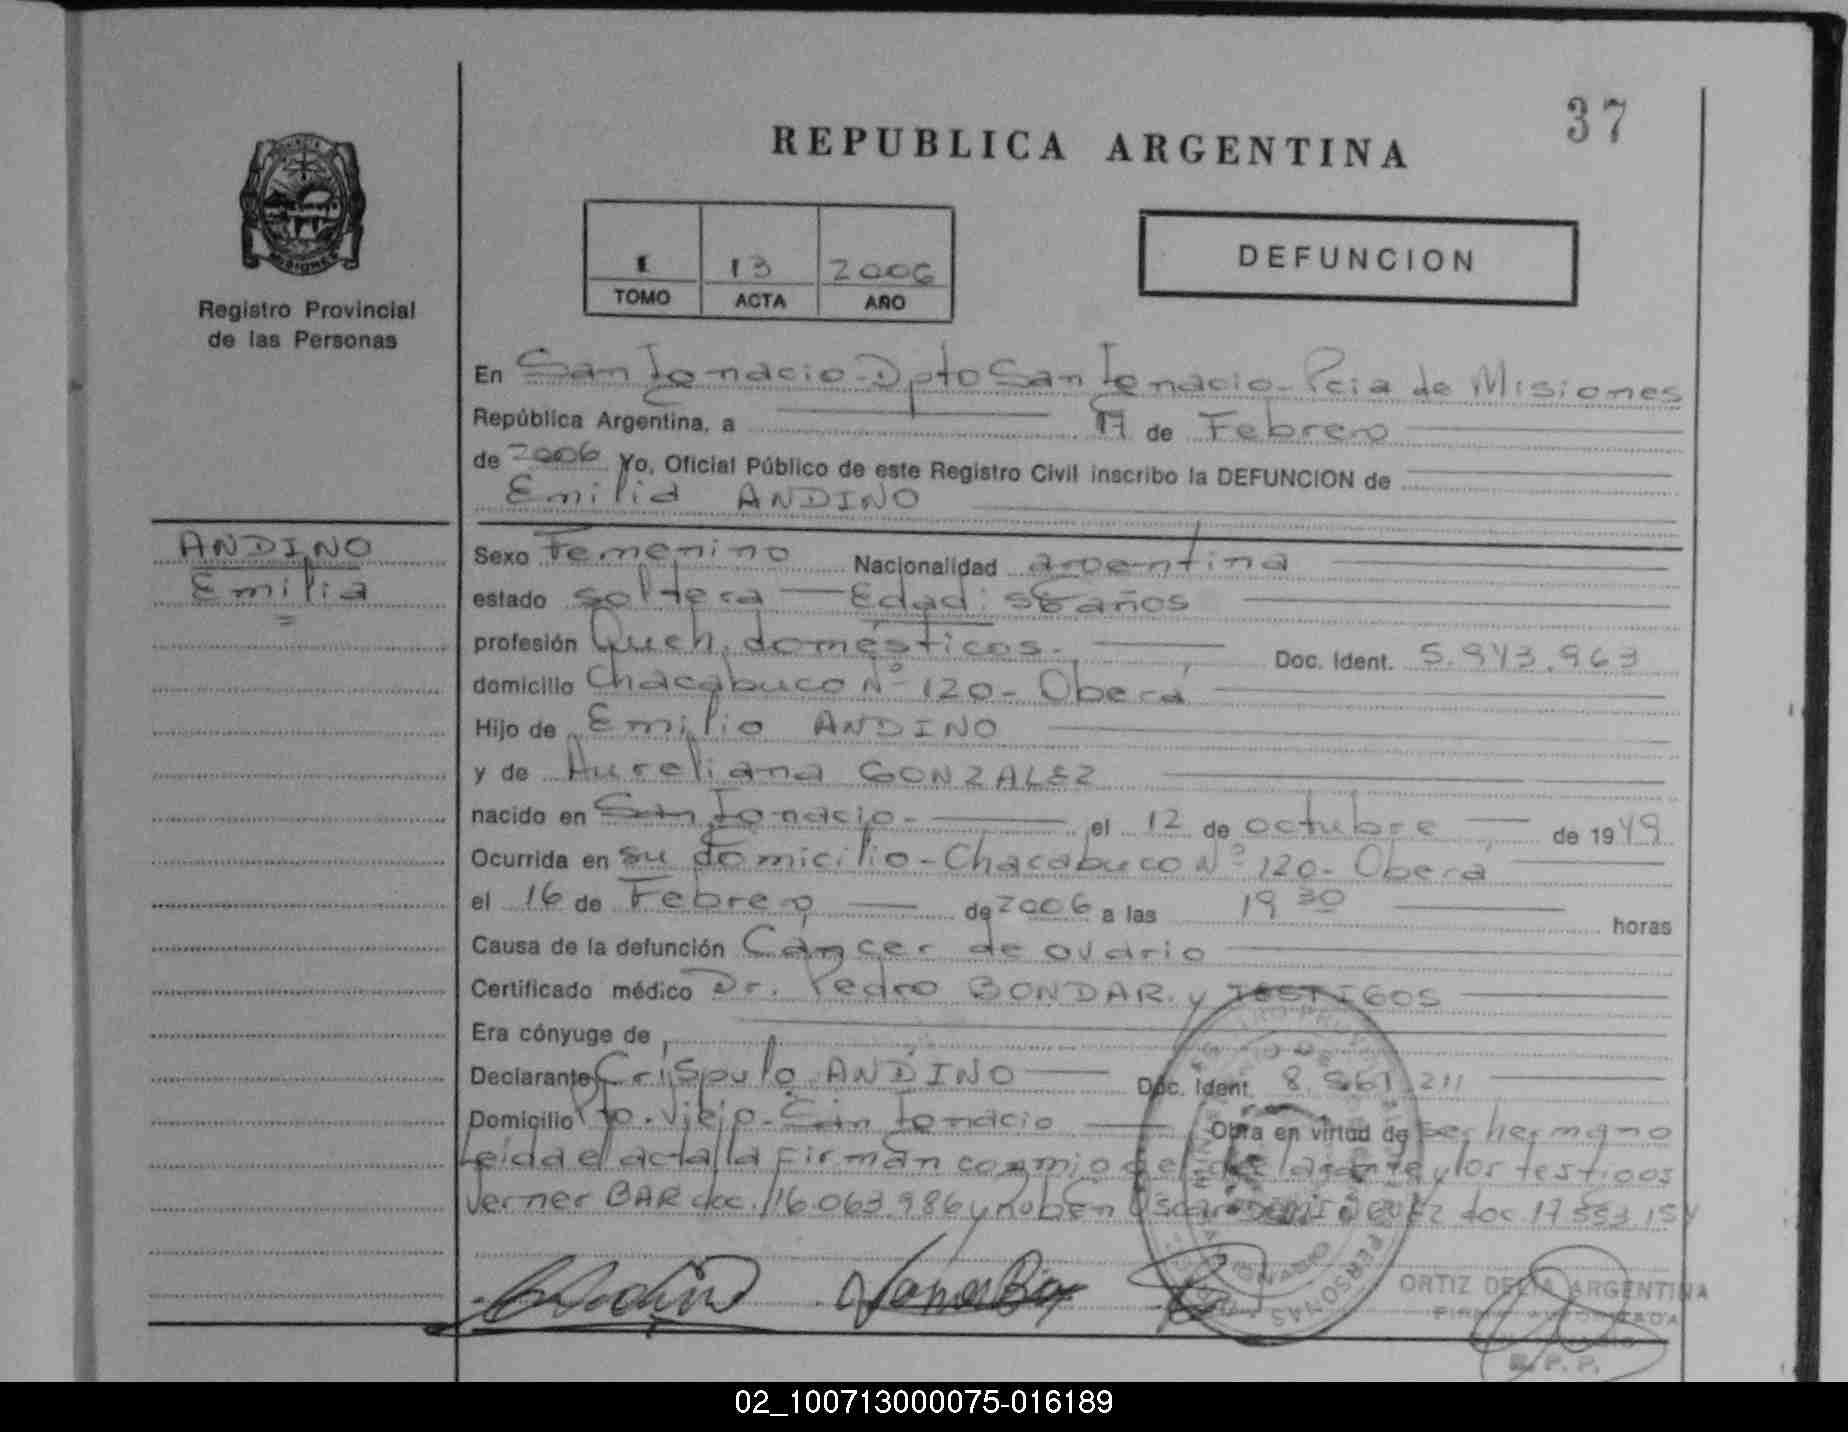 37
REPUBLICA ARGENTINA
MISIONES
Registro Provincial
de las Personas
I 13 2006
TOMO ACTA AÑO
DEFUNCION
En San Ignacio - Dpto San Ignacio - Pcia de Misiones
República Argentina, a 17 de Febrero
de 2006 Yo, Oficial Público de este Registro Civil inscribo la DEFUNCION de
Emilia ANDINO
ANDINO
Emilia
Sexo Femenino Nacionalidad argentina
estado soltera - Edad: 56 años
profesión Queh. domésticos. Doc. Ident. 5.943.963
domicilio Chacabuco Nº 120 - Oberá
Hijo de Emilio ANDINO
y de Aureliana GONZALEZ
nacido en San Ignacio - el 12 de octubre de 1949
Ocurrida en su domicilio - Chacabuco Nº 120 - Oberá
el 16 de Febrero de 2006 a las 19 30 horas
Causa de la defunción Cáncer de ovario
Certificado médico Dr. Pedro BONDAR. y TESTIGOS
Era cónyuge de
Declarante Crispulo ANDINO Doc. Ident. 8.561.211
Domicilio Pto. Viejo - San Ignacio Obra en virtud de ser hermano
Leída el acta, la firman conmigo el declarante y los testigos
Verner BAR doc. 16.063.986 y Rubén Oscar doc. 17.553.154
ORTIZ DELIA ARGENTINA
FIRMA AUTORIZADA
R. P. P.
02_100713000075-016189